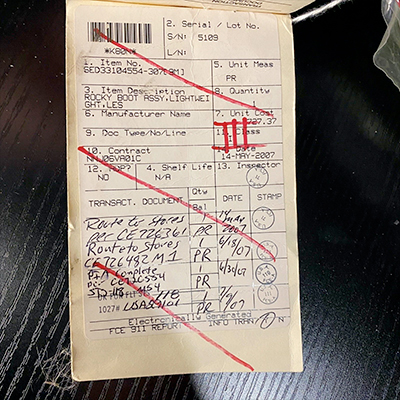 2. Serial / Lot No.
S/N: 5109
*K80N*
L/N:
1. Item No.
SED33104554-307[9M]
5. Unit Meas
PR
3. Item Description
ROCKY BOOT ASSY.LIGHTWEI
GHT.LES
8. Quantity
1
6. Manufacturer Name
7. Unit Cost
737.37
9. Doc Type/No/Line
11. Class
III
10. Contract
NNJ06VA01C
Date
14-MAY-2007
12. ?
NO
4. Shelf Life
N/A
13. Inspector
TRANSACT. DOCUMENT
Qty
Bal
DATE
STAMP
Route to stores
per CE726361
1
PR
14
MAY
2007
Route to Stores
CE726482 M1
1
PR
6/18/
07
PIA Complete
CE726554
1
PR
07
118
1027#
1
PR
07
Electronically Generated
FCE 911 REPUR:
INFO TRAN: Y N